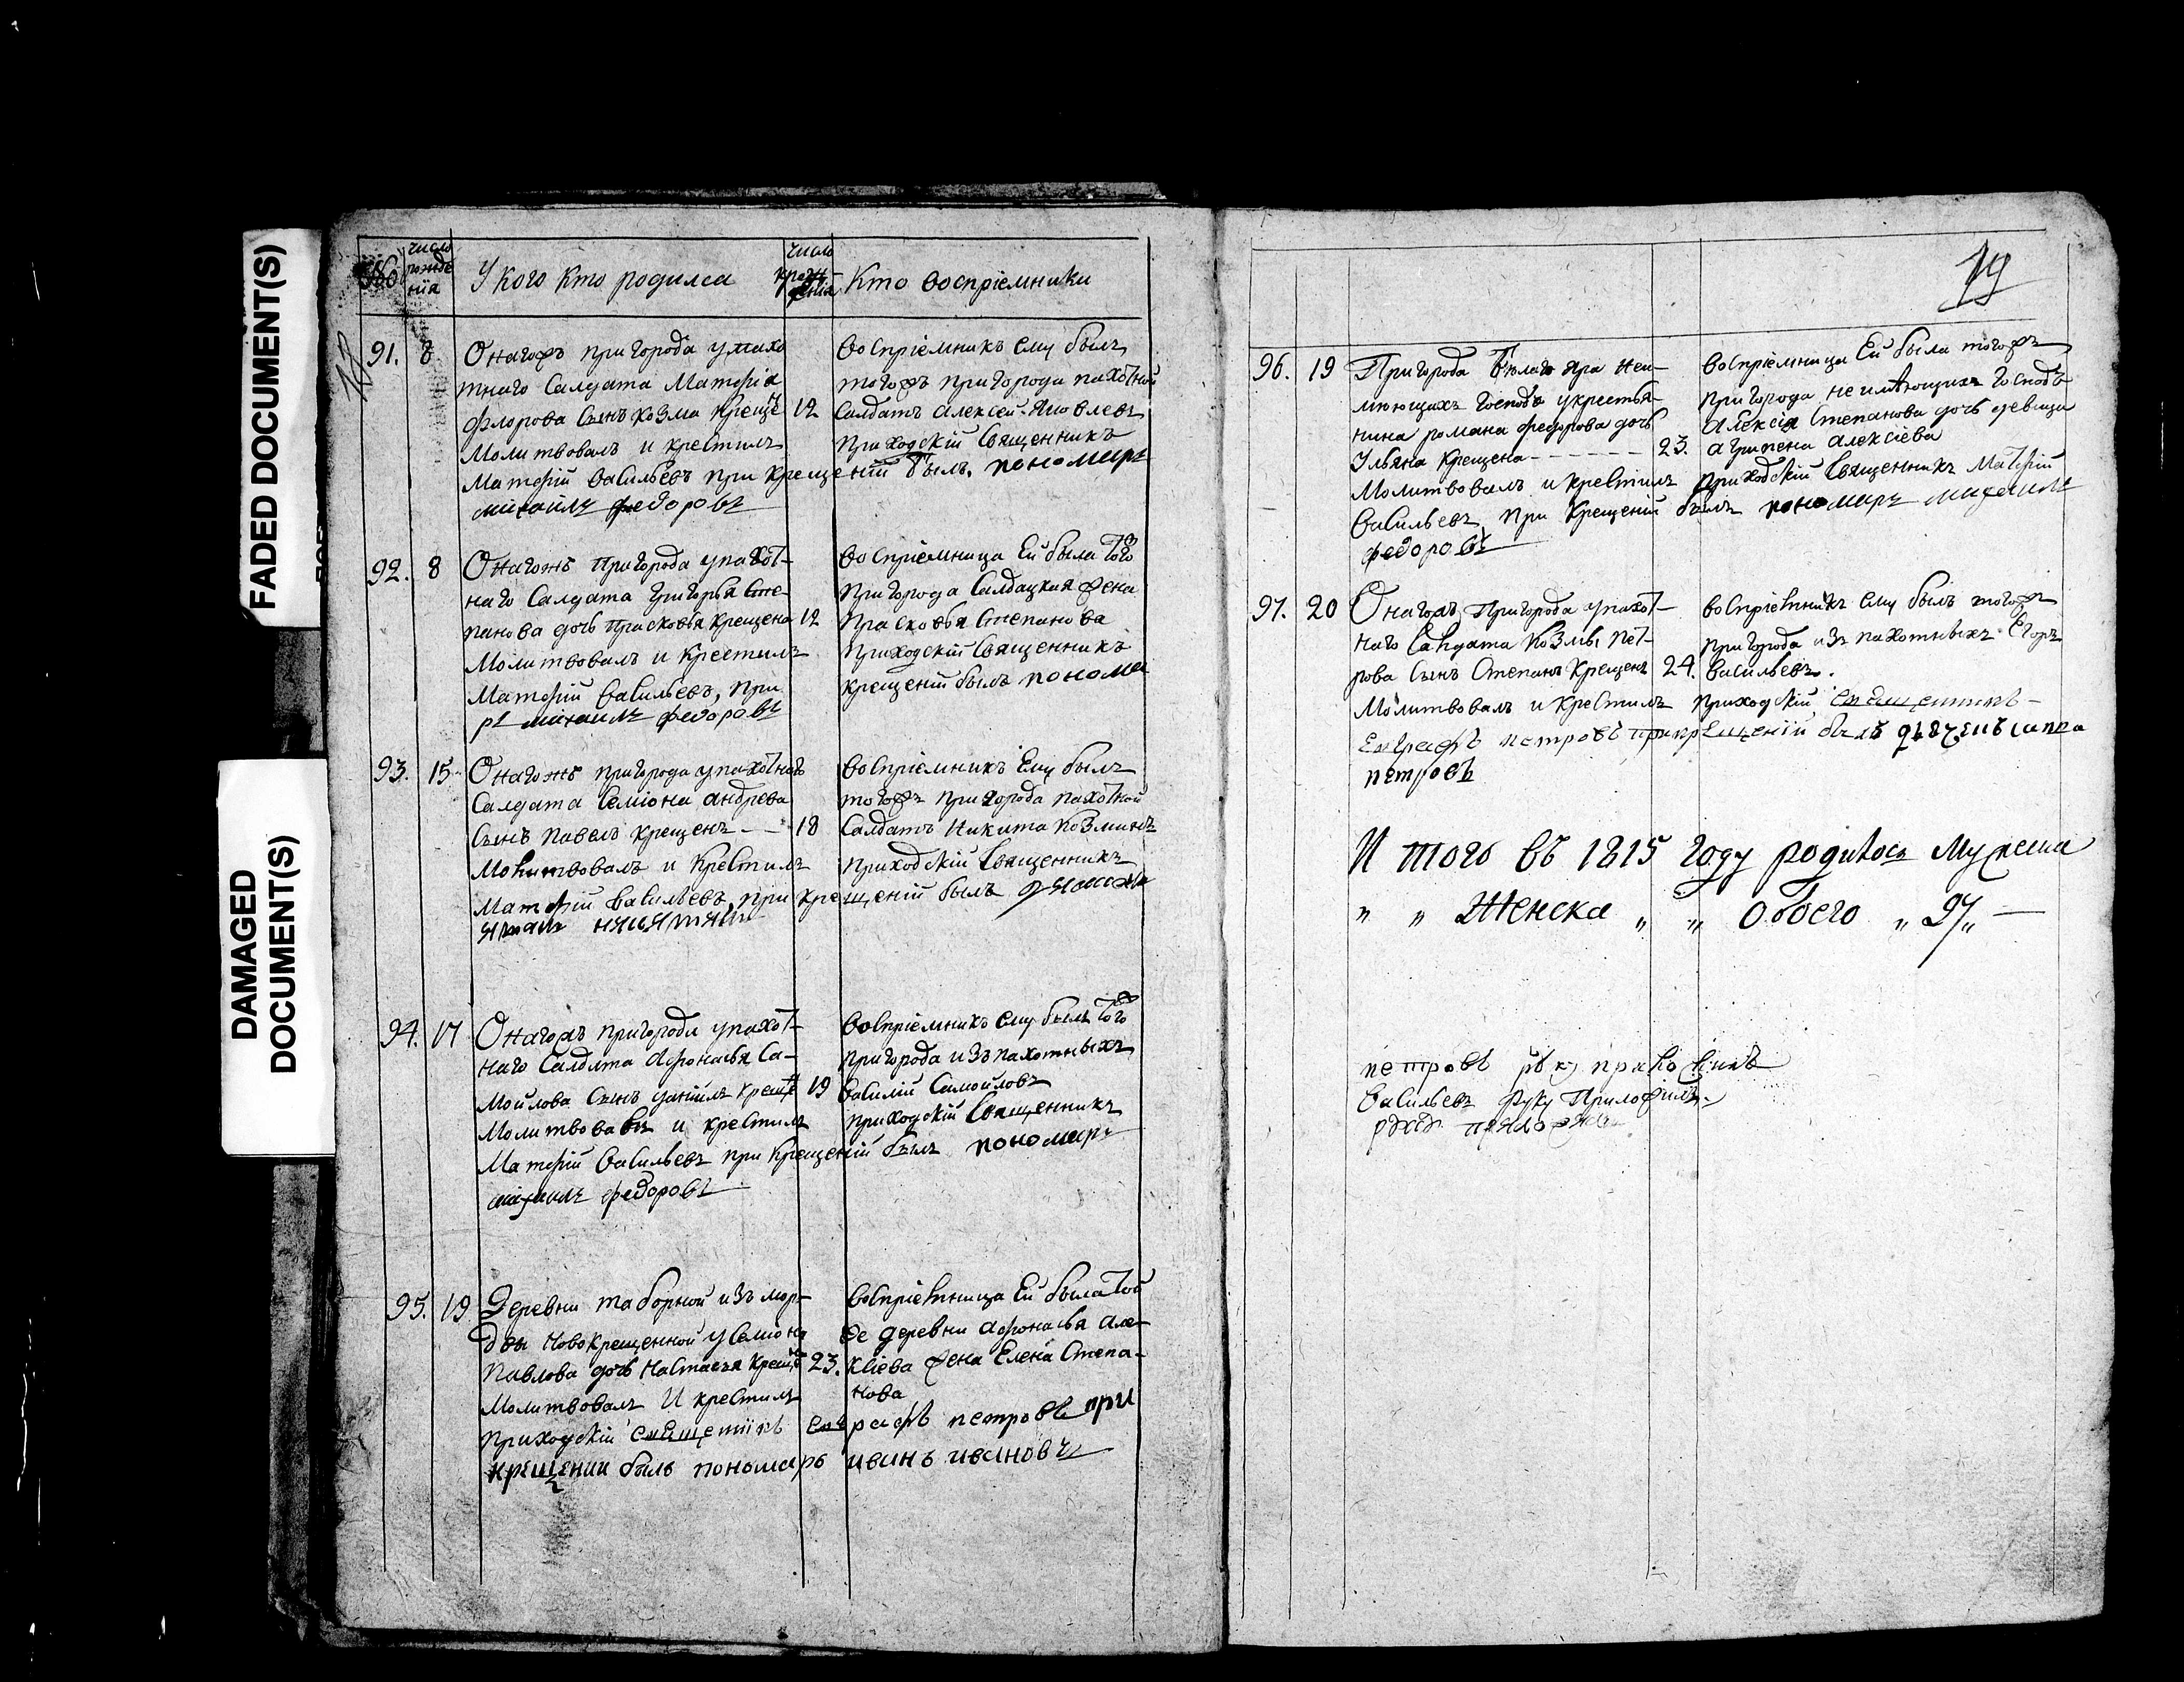 FADED DOCUMENT(S)
DAMAGED
DOCUMENT(S)
число рожденiя
У кого кто родился
число крещенiя
Кто воспрiемники
91. 8
Онагожъ пригорода у пахо
тнаго Салдата Матфiя
Флорова Сынъ козма крещё 12
Молитвовалъ и крестилъ
Матфiй Васильевъ при крещенiй былъ пономарь
михаилъ федоровъ
воспрiемникъ Ему былъ
тогожъ пригорода пахотной
Салдатъ Алексей Яковлевъ
приходскiй Священникъ
92. 8
Онагожъ Пригорода у пахот-
наго Салдата Григорья Сте-
панова дочь Прасковья крещена 12
Молитвовалъ и крестилъ
Матфiй Васильевъ, при
рь михаилъ федоровъ
воспрiемница Ей была того
пригорода Салдацкая жена
Прасковья Степанова
приходскiй Священникъ
крещенiй былъ понома
93. 15
Онагожъ пригорода у пахотнаго
Салдата Семiона Андрева
Сынъ павелъ крещенъ - - 18
Молитвовалъ и крестилъ
Матфiй Васильевъ, при крещенiй былъ
воспрiемникъ Ему былъ
тогожъ пригорода пахотной
Салдатъ Никита Козминъ
приходскiй Священникъ
94. 17
Онагожъ пригорода у пахот-
наго Салдата Афонасья Са-
мойлова Сынъ данiилъ креще 19
Молитвовалъ и крестилъ
Матфiй Васильевъ при крещенiй былъ пономарь
михаилъ федоровъ
воспрiемникъ Ему былъ того
пригорода изъ пахотныхъ
Василiй Самойловъ
приходскiй Священникъ
95. 19
Деревни таборной изъ мор-
двы Новокрещенной у Семiона
Павлова дочь Настасья крещё 23.
Молитвовалъ И крестилъ
приходскiй Евграфъ петровъ при
крещении былъ пономарь иванъ ивановъ
воспрiемница Ей была той
же деревни Афонасья Але-
ксiева жена Елена Степа-
нова
19
96. 19
Пригорода Белаго Яра неи-
меющихъ Господъ у крестья-
нина романа федорова дочь
Ульяна Крещена - - - - - - 23.
Молитвовалъ и крестилъ приходскiй Священникъ Матфiй
Васильевъ при Крещенiи былъ пономарь михаилъ
федоровъ
воспрiемница Ей была тогожъ
пригорода неимѣющихъ Господъ
Алексiя Степанова дочь девица
агрипена Алексiева
97. 20
Онагожъ Пригорода у пахот-
наго Салдата Козмы Пет-
рова Сынъ Степанъ Крещенъ 24.
Молитвовалъ и крестилъ приходскiй
Евграфъ петровъ при крещенiй былъ
петровъ
воспрiемникъ Ему былъ тогожъ
пригорода изъ пахотныхъ Егоръ
Васильевъ.
И того въ 1815 Году родилось Мужеска
" " Женска " " Обоего " 97 " —
петровъ руку приложилъ
Васильевъ руку Приложилъ